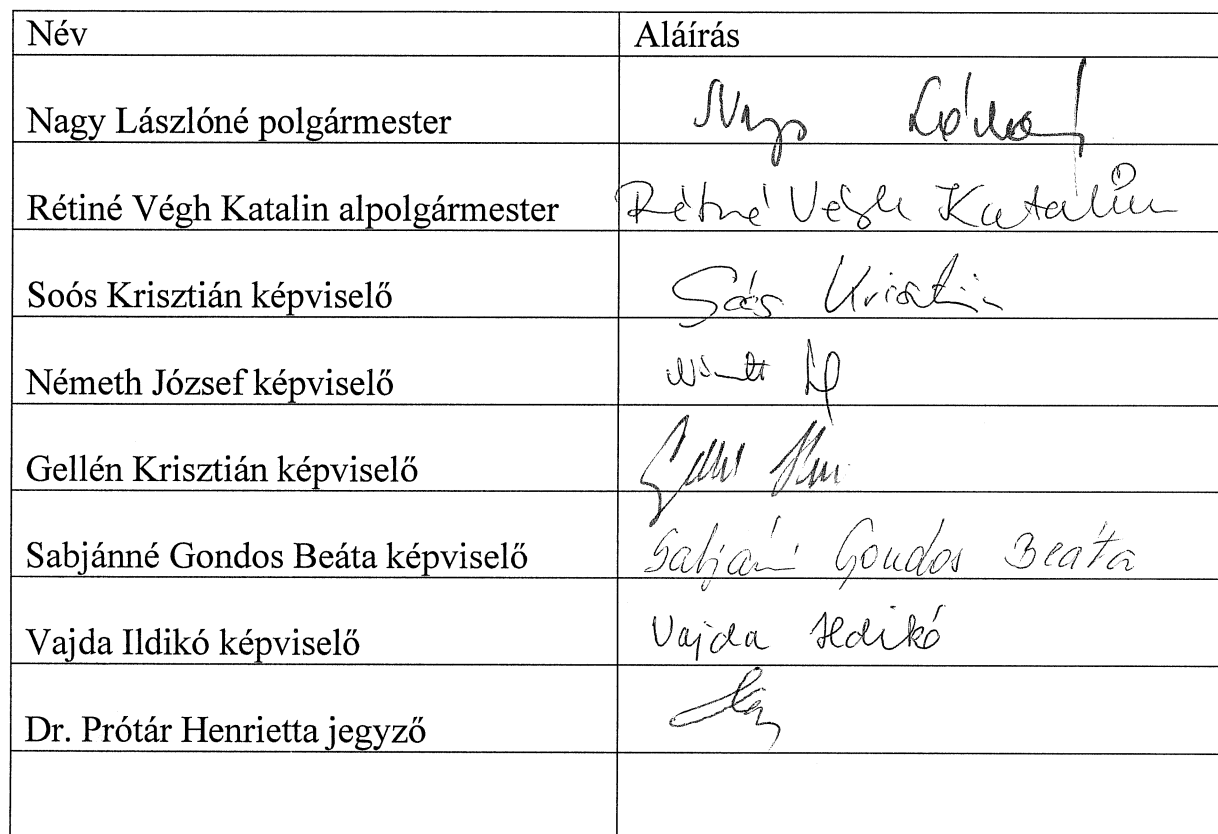 Név Aláírás
Nagy Lászlóné polgármester Nagy
Rétiné Végh Katalin alpolgármester Rétiné Végh Katalin
Soós Krisztián képviselő Soós Krisztián
Németh József képviselő
Gellén Krisztián képviselő
Sabjánné Gondos Beáta képviselő Gondos Beáta
Vajda Ildikó képviselő Vajda Ildikó
Dr. Prótár Henrietta jegyző